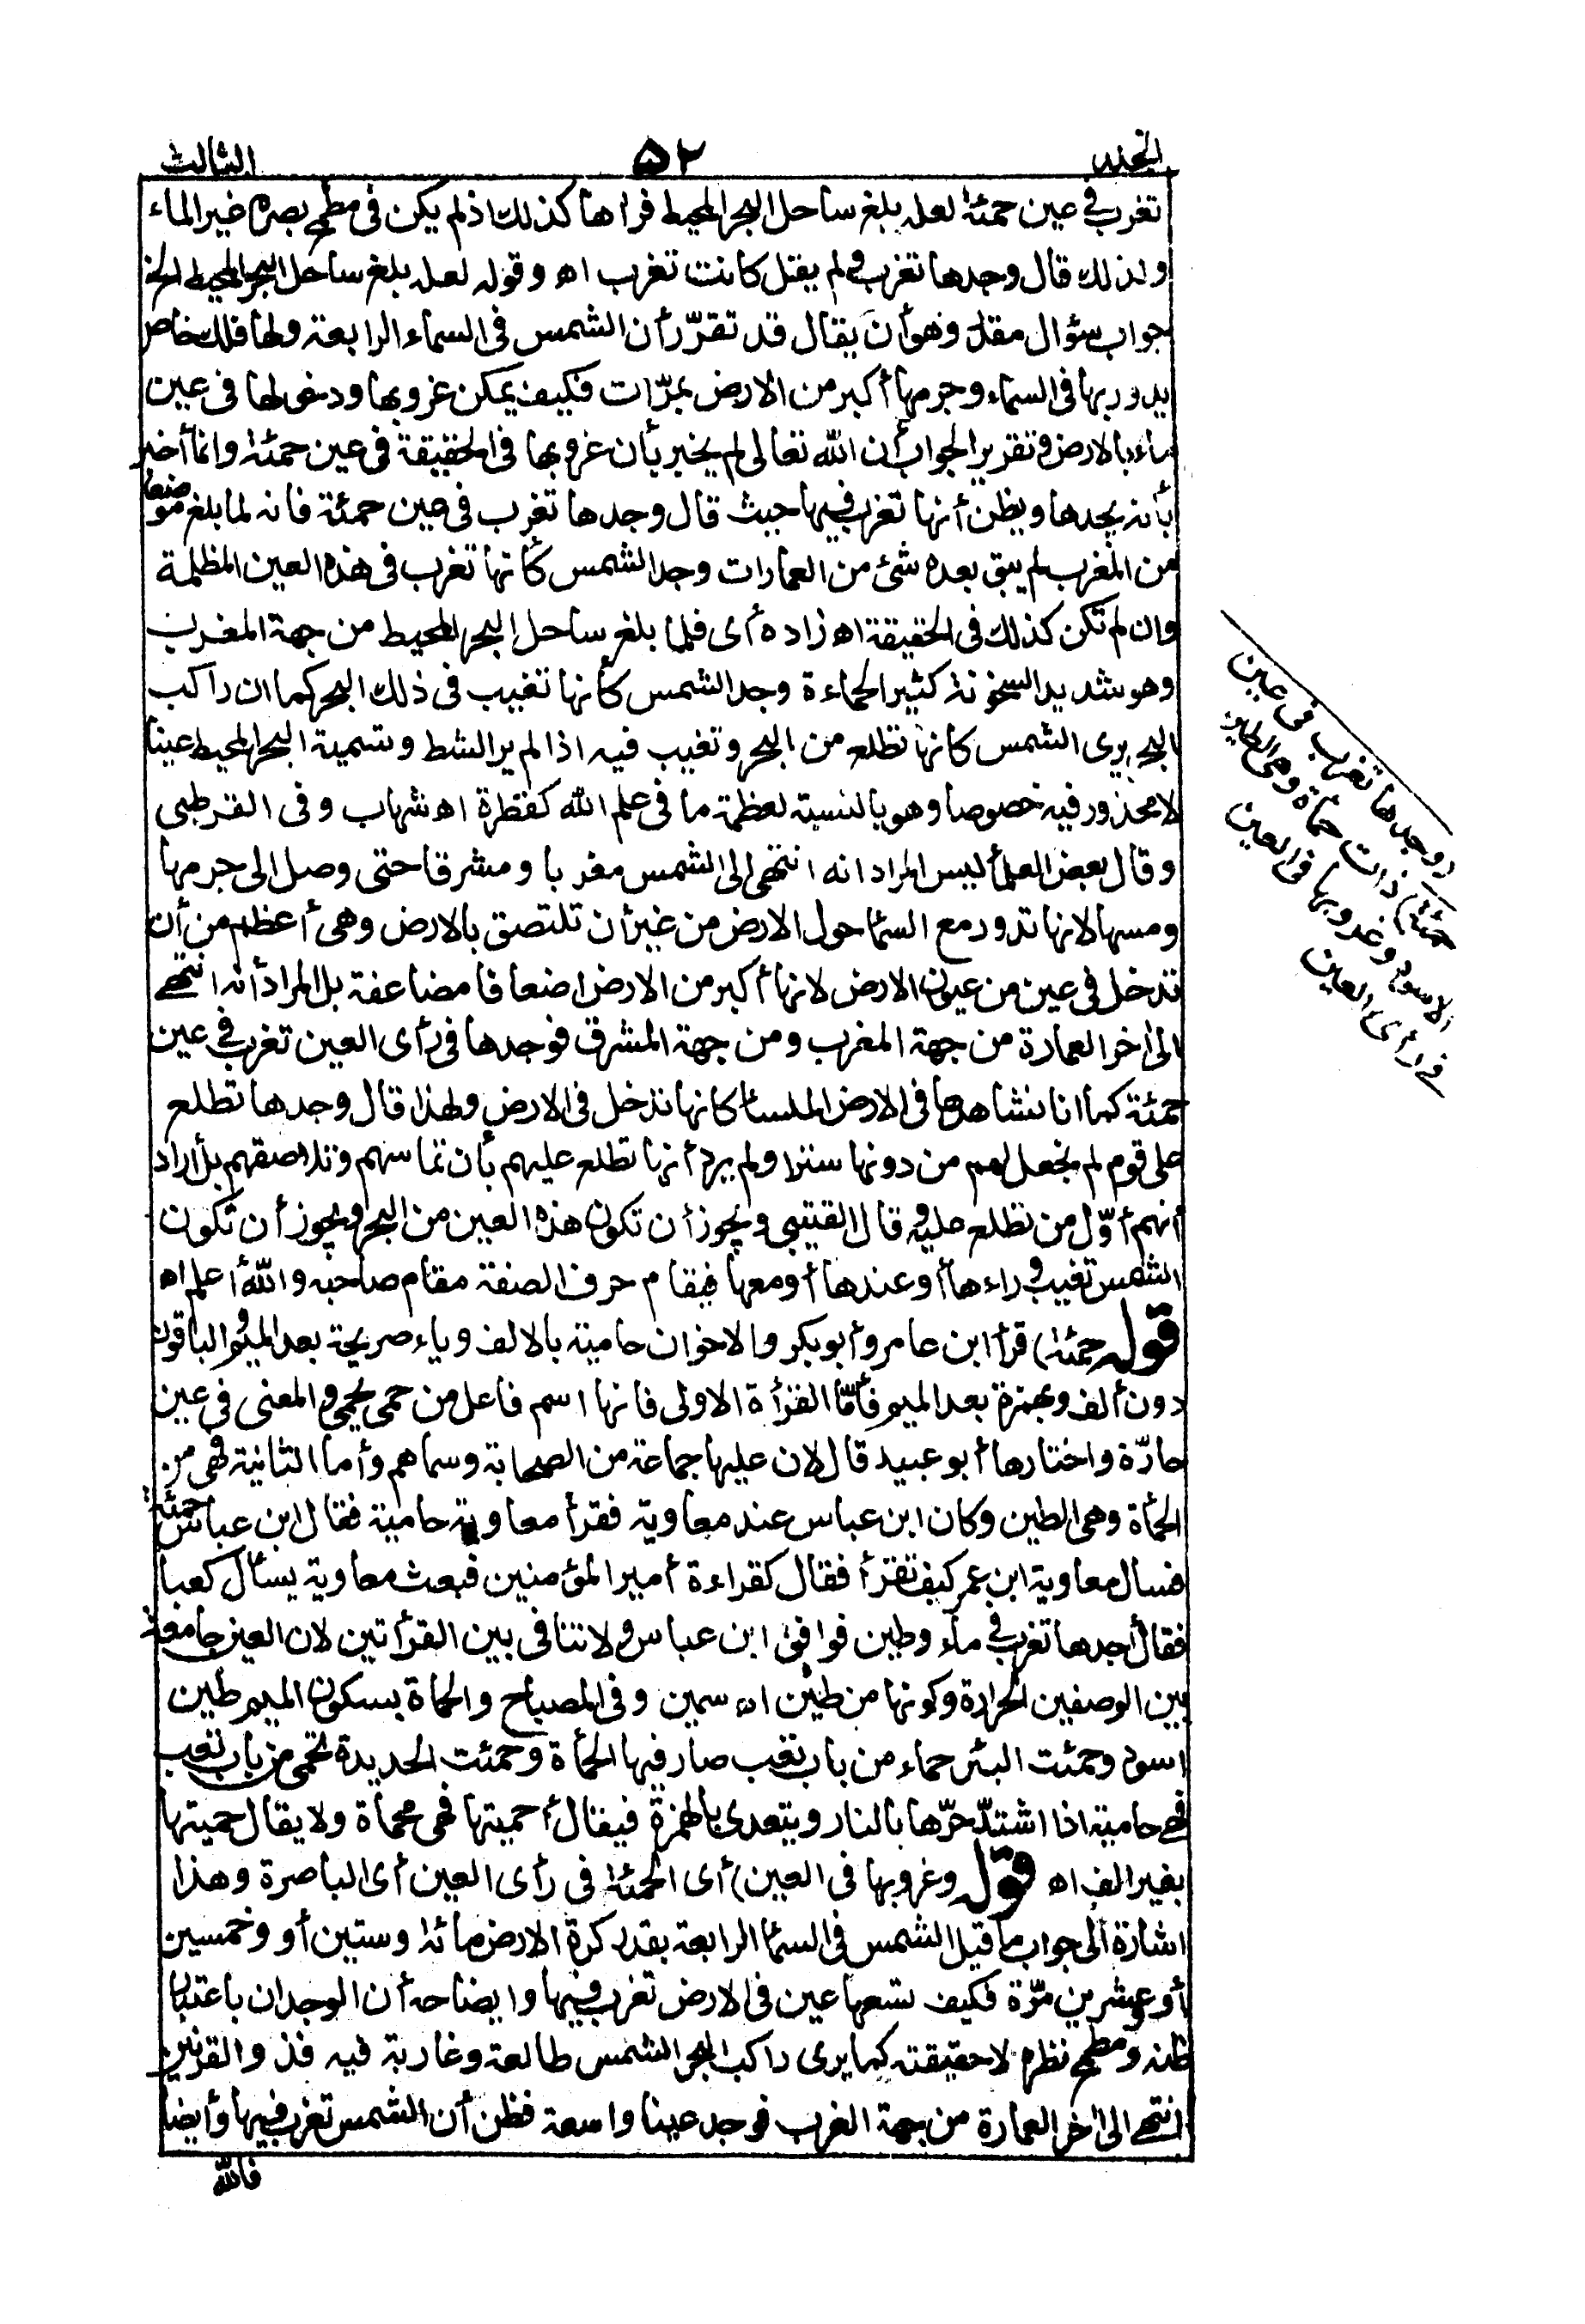 المجلد ٥٢ الثالث
تغرب فى عين حمئة لعله بلغ ساحل البحر المحيط فراها كذلك اذ لم يكن فى مطمح بصره غير الماء
ولذلك قال وجدها تغرب ولم يقل كانت تغرب اه وقوله لعله بلغ ساحل البحر المحيط الخ
جواب سؤال مقدر وهو أن يقال قد تقرّر أن الشمس فى السماء الرابعة ولها فلك خاص
يدور بها فى السماء وجرمها أكبر من الارض بمرّات فكيف يمكن غروبها ودخولها فى عين
ماء بالارض وتقرير الجواب أن الله تعالى لم يخبر بأن غروبها فى الحقيقة فى عين حمئة وانما أخبر
بأنه يجدها ويظن أنها تغرب فيها حيث قال وجدها تغرب فى عين حمئة فانه لما بلغ موضعا
من المغرب لم يبق بعده شئ من العمارات وجد الشمس كأنها تغرب فى هذه العين المظلمة
وان لم تكن كذلك فى الحقيقة اه زاده أى فلما بلغ ساحل البحر المحيط من جهة المغرب
وهو شديد السخونة كثير الحماءة وجد الشمس كأنها تغيب فى ذلك البحر كما ان راكب
البحر يرى الشمس كانها تطلع من البحر وتغيب فيه اذا لم ير الشط وتسمية البحر المحيط عينا
لا محذور فيه خصوصا وهو بالنسبة لعظمة ما فى علم الله كقطرة اه شهاب وفى القرطبى
وقال بعض العلمأ ليس المراد انه انتهى الى الشمس مغربا ومشرقا حتى وصل الى جرمها
ومسها لانها تدور مع السما حول الارض من غير أن تلتصق بالارض وهى أعظم من أن
تدخل فى عين من عيون الارض لانها أكبر من الارض اضعافا مضاعفة بل المراد أنه انتهى
الى اخر العمارة من جهة المغرب ومن جهة المشرق فوجدها فى رأى العين تغرب فى عين
حمئة كما انا نشاهدها فى الارض الملسا كانها تدخل فى الارض ولهذا قال وجدها تطلع
على قوم لم نجعل لهم من دونها سترا ولم يرد أنها تطلع عليهم بأن تماسهم وتلاصقهم بل أراد
أنهم أوّل من تطلع عليه وقال القتيبى ويجوز أن تكون هذه العين من البحر ويجوز أن تكون
الشمس تغيب وراءها أو عندها أو معها فيقام حرف الصفة مقام صاحبه والله أعلم اه
قوله حمئة) قرأ ابن عامر وأبو بكر والاخوان حامية بالالف وياء صريحة بعد الميم والباقون
دون ألف وبهمزة بعد الميم فأمّا القرأة الاولى فانها اسم فاعل من حمى يحمى والمعنى فى عين
حارّة واختارها أبو عبيد قال لان عليها جماعة من الصحابة وسماهم وأما الثانية فهى من
الحمأة وهى الطين وكان ابن عباس عند معاوية فقرأ معاوية حامية فقال ابن عباس حمئة
فسال معاوية ابن عمر كيف تقرأ فقال كقراءة أمير المؤمنين فبعث معاوية يسأل كعبا
فقال أجدها تغرب فى ماء وطين فوافق ابن عباس ولا تنافى بين القرأتين لان العين جامعة
بين الوصفين الحرارة وكونها من طين اه سمين وفى المصباح والحماة بسكون الميم طين
اسود وحمئت البئر حماء من باب تعب صار فيها الحمأة وحمئت الحديدة تحمى من باب تعب
فهى حامية اذا اشتدّ حرّها بالنار ويتعدى بالهمزة فيقال أحميتها فهى محماة ولا يقال حميتها
بغير الف اه قوله وغروبها فى العين) أى الحمئة فى رأى العين أى الباصرة وهذا
اشارة الى جواب ما قيل الشمس فى السما الرابعة بقدر كرة الارض مائة وستين أو وخمسين
أو وعشرين مرّة فكيف تسعها عين فى الارض تغرب فيها وايضاحه أن الوجدان باعتبار
ظنه ومطمح نظره لا حقيقته كما يرى راكب البحر الشمس طالعة وغاربة فيه فذو القرنين
انتهى الى اخر العمارة من جهة الغرب فوجد عينا واسعة فظن أن الشمس تغرب فيها وأيضا
فالله
(وجدها تغرب فى عين
حمئة) ذات حمأة وهى الطين
الاسود وغروبها فى العين
فى رأى العين